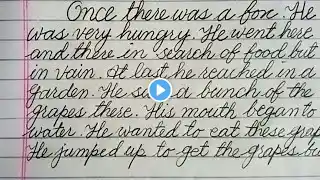 Once there was a fox. He
was very hungry. He went here
and there in search of food but
in vain. At last he reached in a
garden. He a bunch of the
grapes there. His mouth began to
water. He wanted to eat these
He jumped up to get the grapes